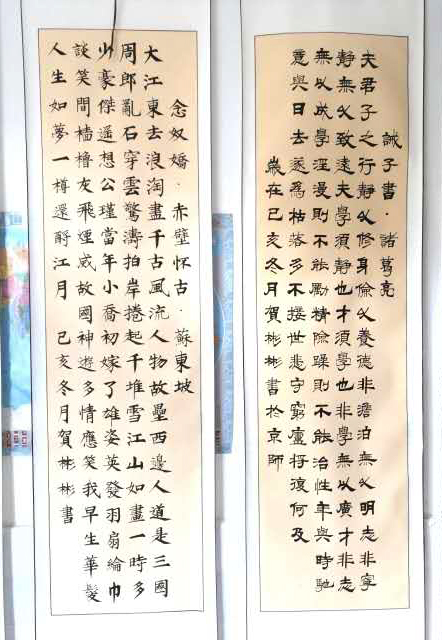 誡子書·諸葛亮
夫君子之行靜以修身儉以養德非澹泊無以明志非寧
靜無以致遠夫學須靜也才須學也非學無以廣才非志
無以成學淫漫則不能勵精險躁則不能治性年與時馳
意與日去遂為枯落多不接世悲守窮廬將復何及
歲在己亥冬月賀彬彬書於京師
念奴嬌·赤壁怀古·蘇東坡
大江東去浪淘盡千古風流人物故壘西邊人道是三國
周郎亂石穿雲驚濤拍岸捲起千堆雪江山如畫一時多
少豪傑遙想公瑾當年小喬初嫁了雄姿英發羽扇綸巾
談笑間檣櫓灰飛煙滅故國神遊多情應笑我早生華髮
人生如夢一樽還酹江月 己亥冬月賀彬彬書